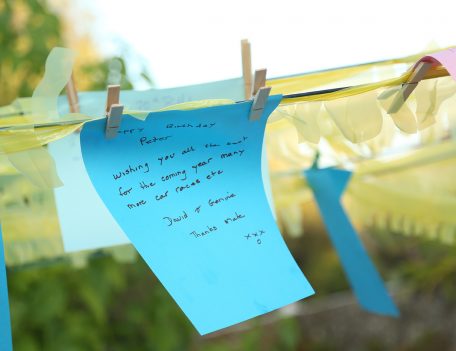 Happy Birthday
Peter
Wishing you all the best
for the coming year many
more car races etc
David + Gemma
Thanks Mate
x x x
o